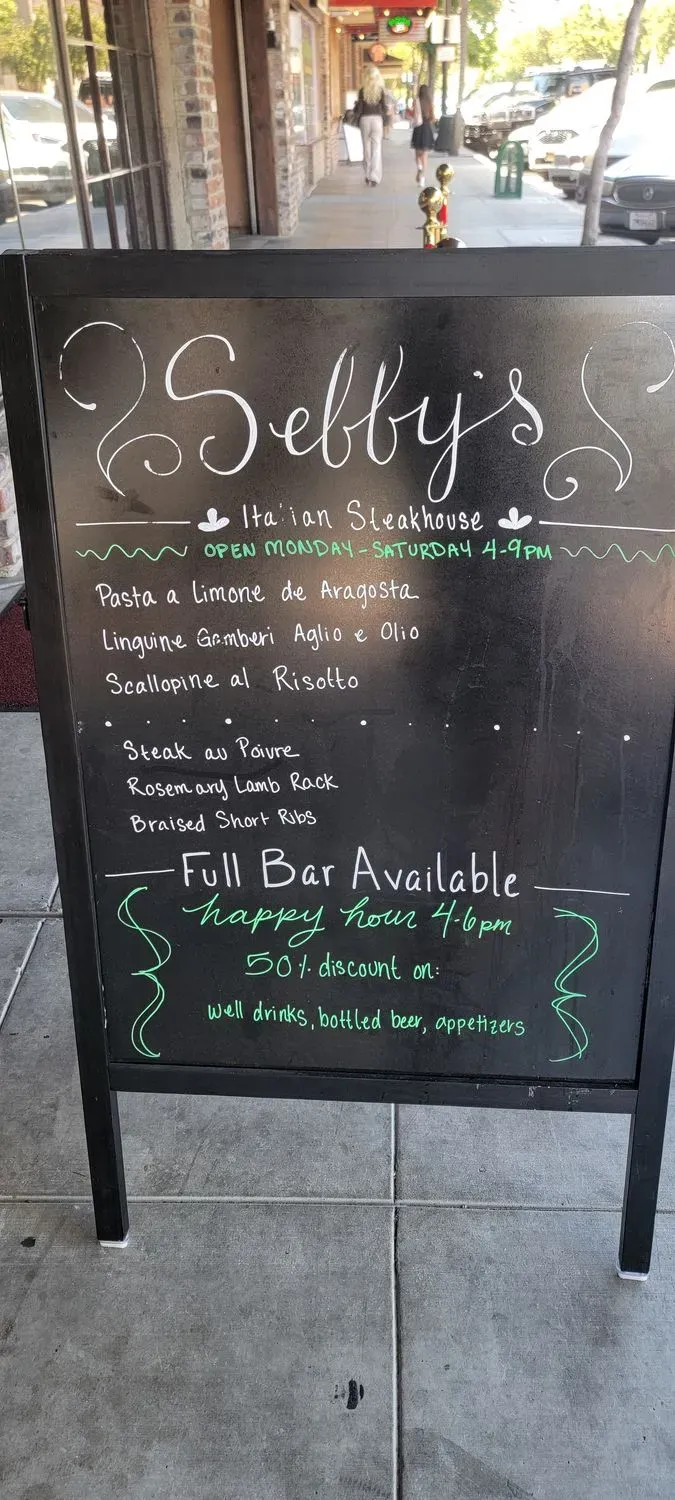 Sebby's
Ita'ian Steakhouse
OPEN MONDAY-SATURDAY 4-9PM
Pasta a Limone de Aragosta
Linguine Gamberi Aglio e Olio
Scallopine al Risotto
Steak au Poivre
Rosemary Lamb Rack
Braised Short Ribs
Full Bar Available
happy hour 4-6pm
50% discount on:
well drinks, bottled beer, appetizers